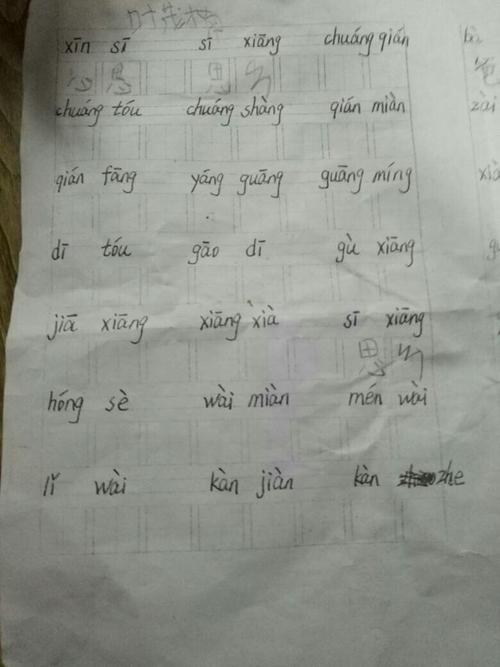 xīn sī sī xiāng chuáng qián
心思 思乡
chuáng tóu chuáng shàng qián miàn
qián fāng yáng guāng guāng míng
dī tóu gāo dī gù xiāng
jiā xiāng xiāng xià sī xiāng
思乡
hóng sè wài miàn mén wài
lǐ wài kàn jiàn kàn zhe
zài